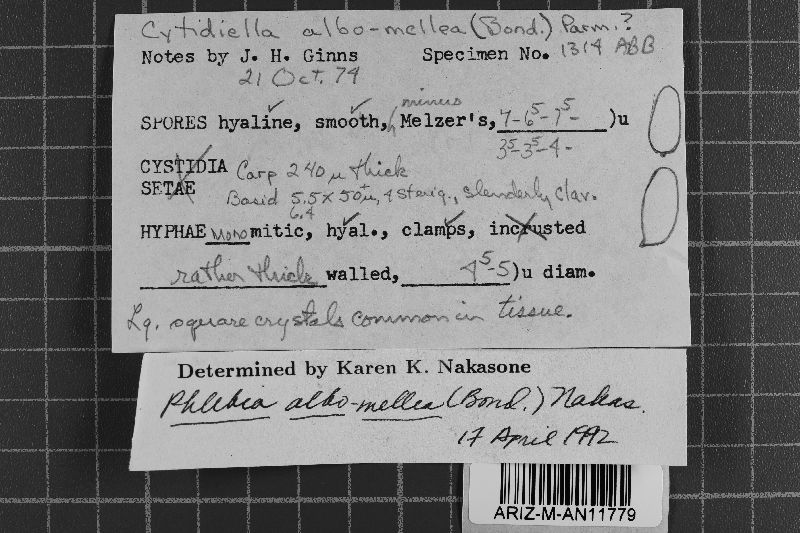 Cytidiella albo-mellea (Bond.) Parm.?
Notes by J. H. Ginns Specimen No. 1314 ABB
21 Oct. 74
minus
SPORES hyaline, smooth, Melzer's, 7-6⁵-7⁵- )u
3⁵-3⁵-4-
CYSTIDIA Carp 240 µ thick
SETAE
Basid 5.5 x 50± µ, 4 sterig., slenderly clav.
6.4
HYPHAE monomitic, hyal., clamps, incrusted
rather thick walled, 4⁵-5 )u diam.
Lg. square crystals common in tissue.
Determined by Karen K. Nakasone
Phlebia albo-mellea (Bond.) Nakas.
17 April 1992
ARIZ-M-AN11779